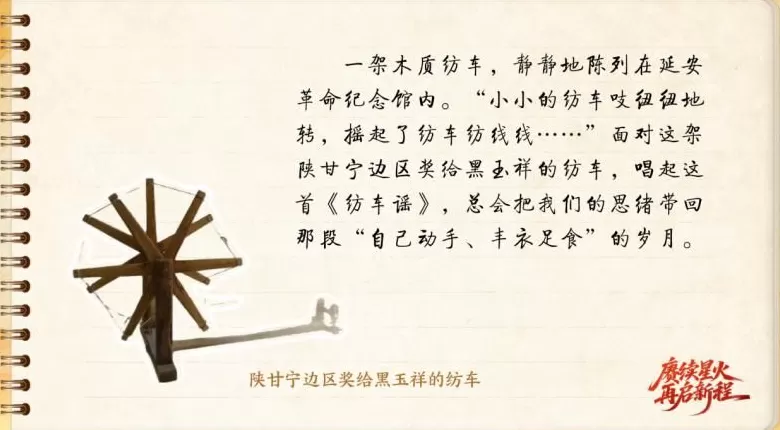 一架木质纺车，静静地陈列在延安
革命纪念馆内。“小小的纺车吱纽纽地
转，摇起了纺车纺线线……”面对这架
陕甘宁边区奖给黑玉祥的纺车，唱起这
首《纺车谣》，总会把我们的思绪带回
那段“自己动手、丰衣足食”的岁月。
陕甘宁边区奖给黑玉祥的纺车
赓续星火
再启新程